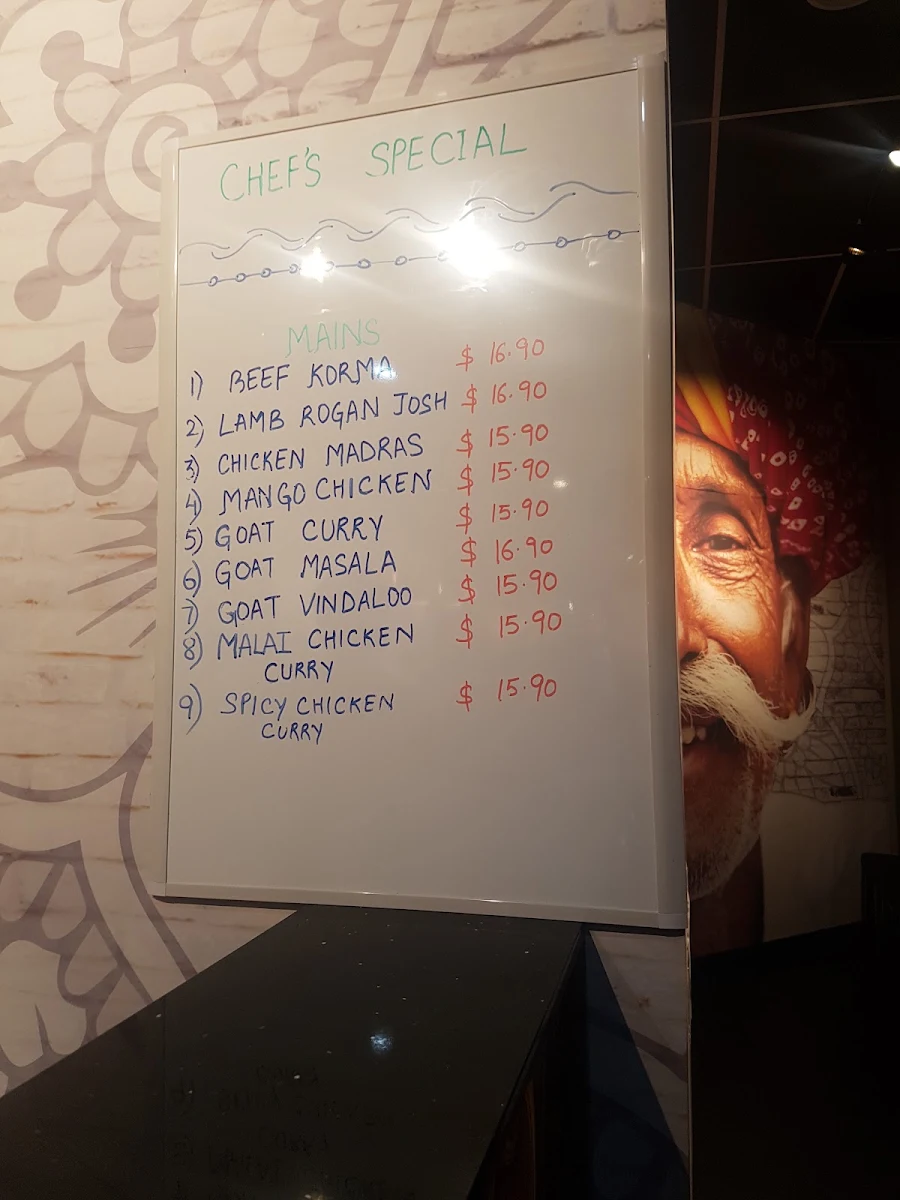 CHEF'S SPECIAL
MAINS
1) BEEF KORMA $ 16.90
2) LAMB ROGAN JOSH $ 16.90
3) CHICKEN MADRAS $ 15.90
4) MANGO CHICKEN $ 15.90
5) GOAT CURRY $ 15.90
6) GOAT MASALA $ 16.90
7) GOAT VINDALOO $ 15.90
8) MALAI CHICKEN $ 15.90
CURRY
9) SPICY CHICKEN $ 15.90
CURRY